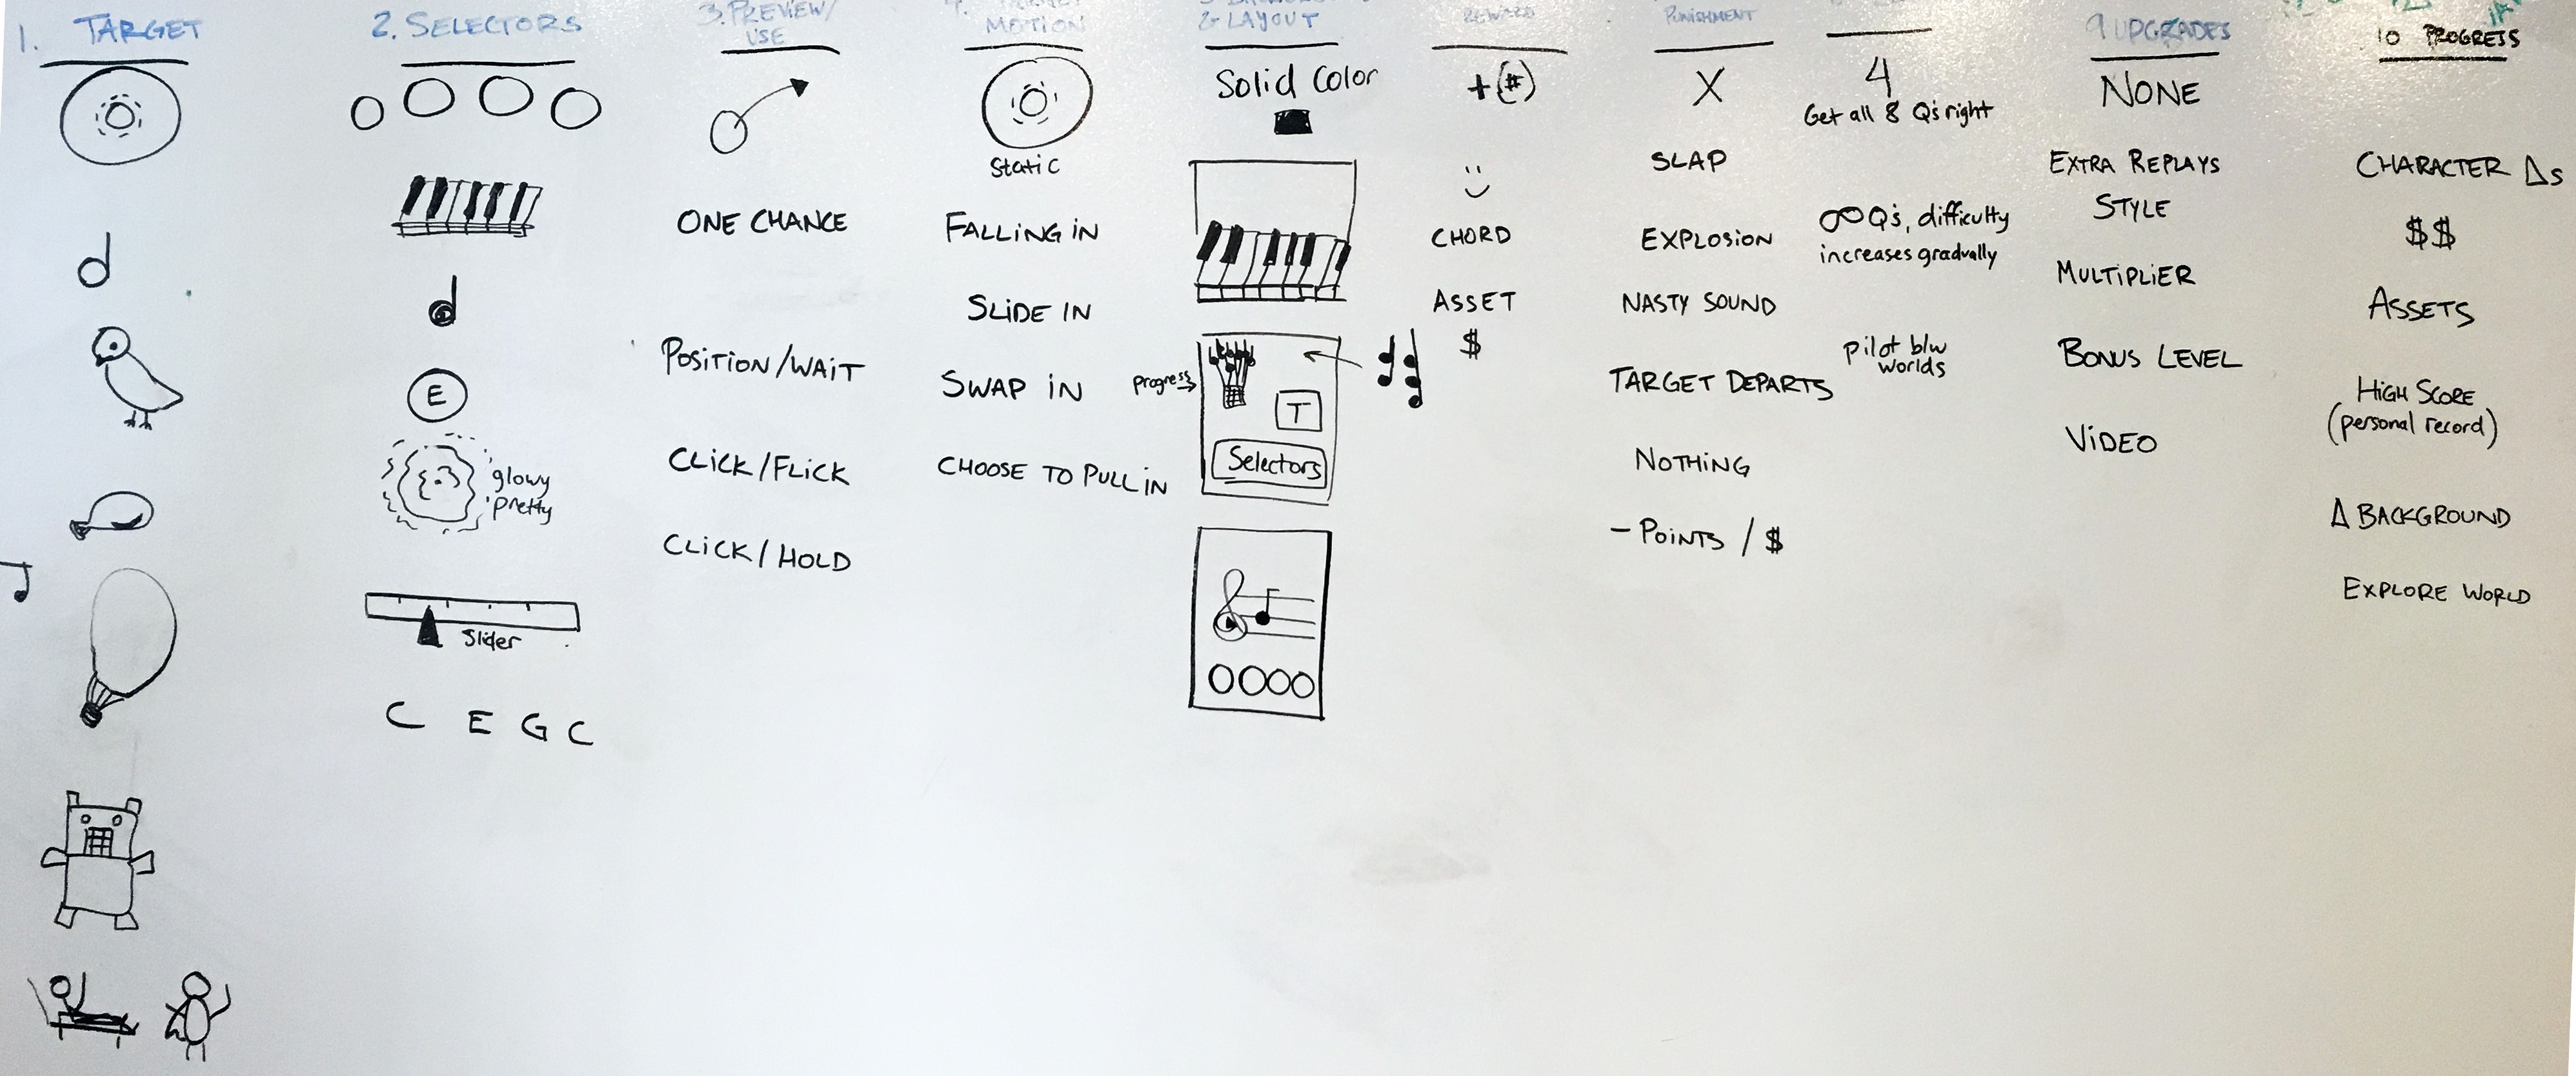 1. TARGET
2. SELECTORS
E
glowy
pretty
Slider
C E G C
3. PREVIEW/
USE
ONE CHANCE
POSITION/WAIT
CLICK/FLICK
CLICK/HOLD
4.
MOTION
Static
FALLING IN
SLIDE IN
SWAP IN
CHOOSE TO PULL IN
& LAYOUT
Solid Color
progress
T
Selectors
REWARD
+(#)
CHORD
ASSET
$
PUNISHMENT
X
SLAP
EXPLOSION
NASTY SOUND
TARGET DEPARTS
NOTHING
- POINTS / $
4
Get all 8 Q's right
∞ Q's, difficulty
increases gradually
pilot b/w
worlds
9 UPGRADES
NONE
EXTRA REPLAYS
STYLE
MULTIPLIER
BONUS LEVEL
VIDEO
10 PROGRESS
CHARACTER Δs
$$
ASSETS
HIGH SCORE
(personal record)
Δ BACKGROUND
EXPLORE WORLD